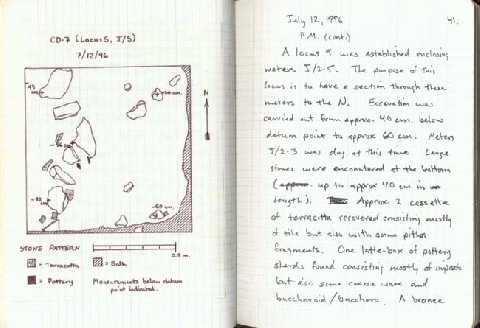 CD-7 (Locus 5, J/5)
7/12/96
STONE PATTERN
= Terracotta
= Balk
= Pottery
Measurements below datum
point indicated.
July 12, 1996
41.
P.M. (cont.)
A locus 9 was established enclosing
meters J/2-5. The purpose of this
locus is to have a section through these
meters to the N. Excavation was
carried out from approx. 40 cm. below
datum point to approx 60 cm. Meters
J/2-3 was dug at this time. Large
stones were encountered at the bottom
up to approx 40 cm in
length). Approx. 2 cassette
of terracotta recovered consisting mostly
of tile but also with some pithos
fragments. One lotte-box of pottery
sherds found consisting mostly of impasto
but also some coarse ware and
buccheroid/bucchero. A bronze